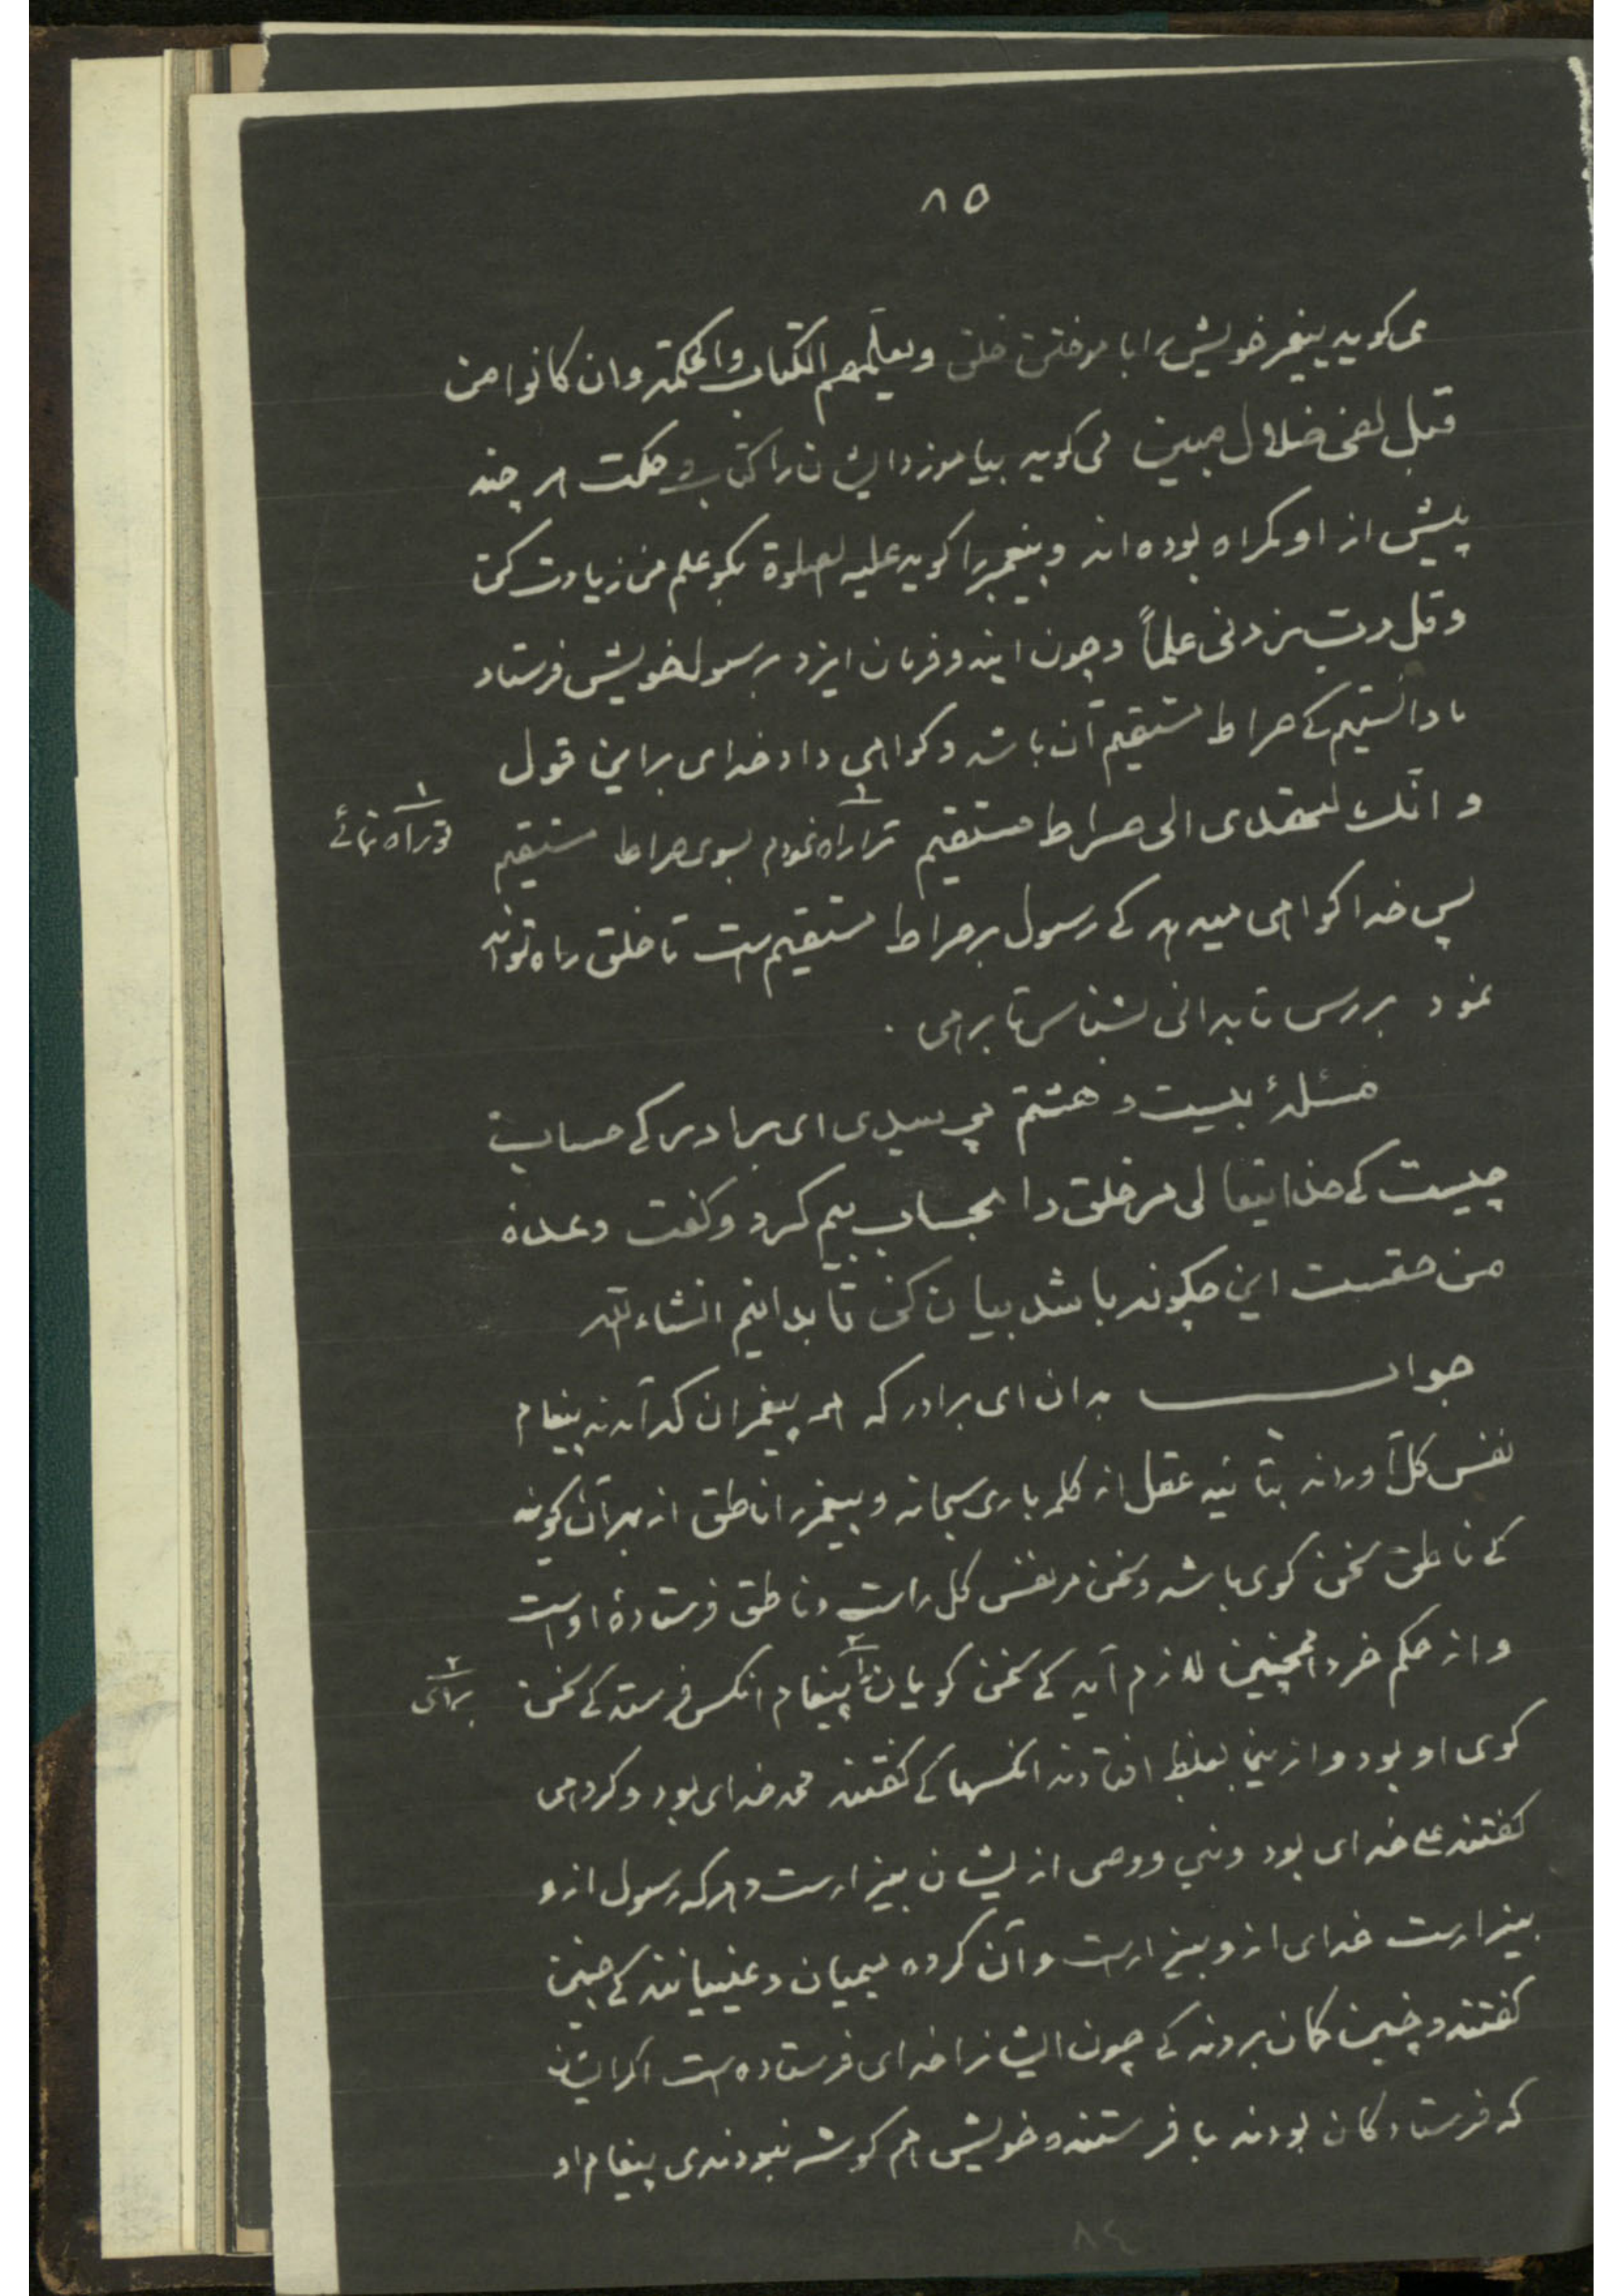 ٨٥
می کوید پیغمبر خویش را با موختن خلق ویعلّمهم الکتاب والحکمة وان کانوا من
قبل لفی ضلال مبین می کوید بیاموزد ایشان را کتاب و حکمت هر چند
پیش از او کمراه بوده اند و پیغمبر را کوید علیه الصلوة بکو علم من زیادت کن
و قل رب زدنی علماً و چون ایزد فرمان ایزد برسول خویش فرستاد
ما دانستیم کے صراط مستقیم آن باشد و کواهی داد خدای براین قول
و انّک لتهدی الی صراط مستقیم ترا راه نمودم بسوی صراط مستقیم
۱ تو راه نمائے
پس خدا کواهی میدهد کے رسول بر صراط مستقیم است تا خلق را راه تواند
نمود بررس تا بدانی بشناس تا برهی .
مسئلۀ بیست و هشتم پرسیدی ای برادر کے حساب
چیست کے خدایتعالی مر خلق را بحساب بیم کرد و کفت وعدۀ
من حقست این چکونه باشد بیان کن تا بدانیم انشاء الله
جواب بدان ای برادر که هر پیغمبران که آمدند پیغام
نفس کل آوردند بتائید عقل از کلمه باری سبحانه و پیغمبر را ناطق از بهر آن کویند
کے ناطق سخن کوی باشد و سخن مر نفس کل راست و ناطق فرستادۀ اوست
و از حکم خرد همچنین لازم آید کے سخن کویان را پیغام انکس فرستد کے سخن
۲ برای
کوی او بود و از ینجا بغلط افتادند انکسها کے کفتند محمد خدای بود و کروهی
کفتند علی خدای بود و نبی و وصی از یشان بیزارست و هر که رسول ازو
بیزارست خدای ازو بیزارست و آن کروه میمیان و عینیانند کے چنین
کفتند و چنین کمان بردند کے چون ایشانرا خدای فرستاده است اکر ایشان
که فرستادکان بودند با فرستنده خویش هم کوشه نبودندی پیغام او
٨٤